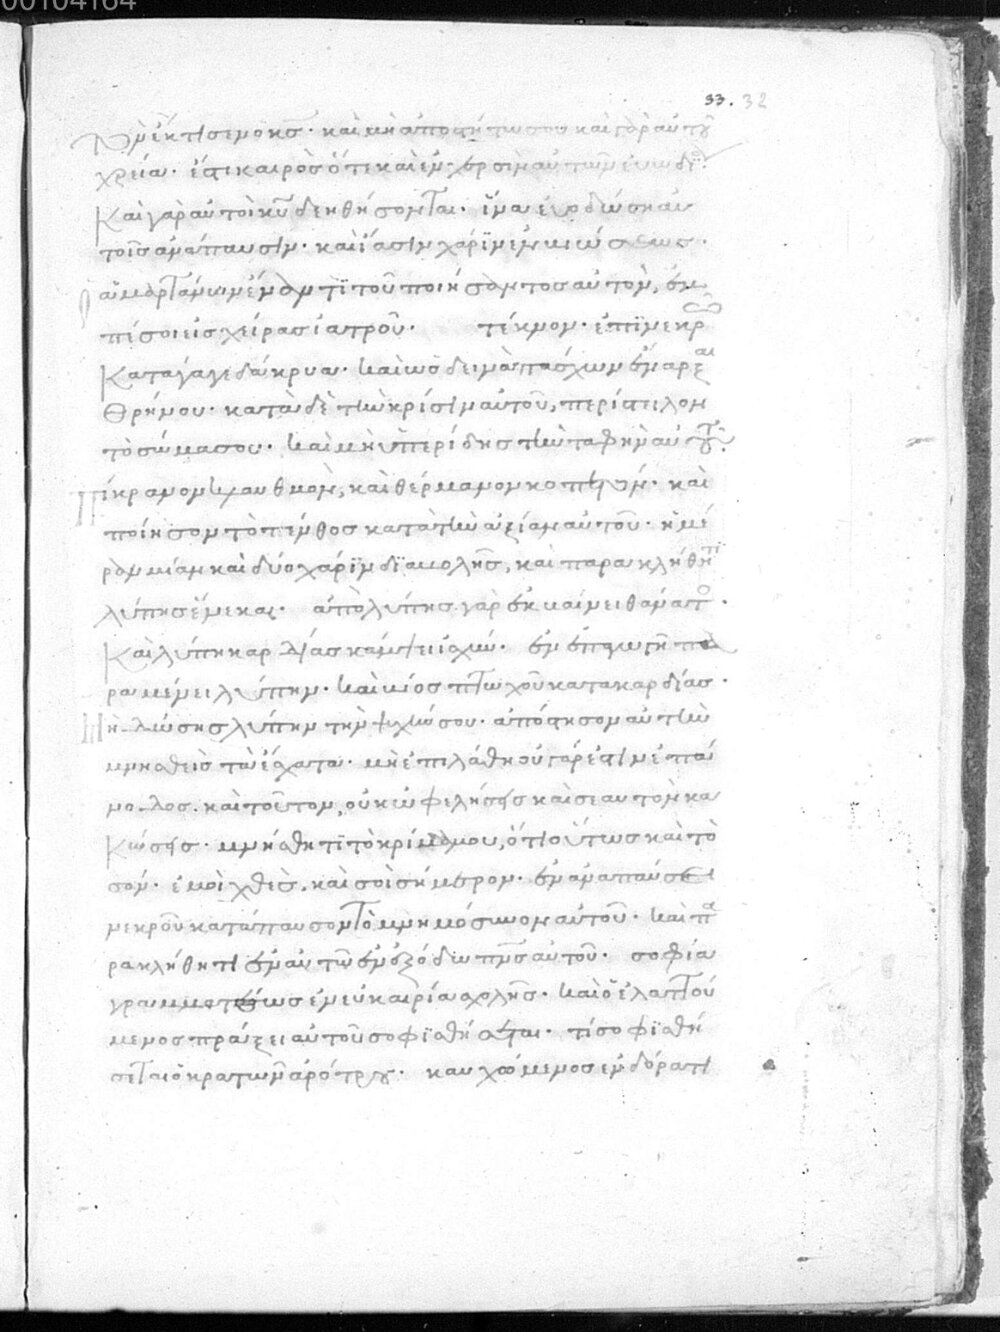 00104164
33. 32
τὸν ἔκτισεν ὁ κσ· καὶ μὴ ἀποστήτω σου καὶ γὰρ αὐτοῦ
χρεία· ἔστι καιρὸς ὅτε καὶ ἐν χερσὶν αὐτῶν εὐωδί
Καὶ γὰρ αὐτοὶ κυ δεηθήσονται· ἵνα εὐοδώση αὐ
τοῖς ἀνάπαυσιν· καὶ ἴασιν χάριν ἐμβιώσεως·
ὁ ἁμαρτάνων ἔναντι τοῦ ποιήσαντος αὐτὸν, ἐμ
πέσοι εἰς χεῖρας ἰατροῦ· τέκνον· ἐπὶ νεκρῶ
Κατάγαγε δάκρυα· καὶ ὡς δεινὰ πάσχων ἔναρξαι
Θρήνου· κατὰ δὲ τὴν κρίσιν αὐτοῦ, περίστειλον
τὸ σῶμα σου· καὶ μὴ ὑπερίδης τὴν ταφὴν αὐτοῦ·
Πίκρανον κλαυθμὸν, καὶ θέρμανον κοπετόν· καὶ
ποίησον τὸ πένθος κατὰ τὴν ἀξίαν αὐτοῦ· ἡμέ
ραν μίαν καὶ δύο χάριν διαβολῆς, καὶ παρακλήθητι
λύπης ἕνεκα· ἀπὸ λύπης γὰρ ἐκβαίνει θάνατο·
Καὶ λύπη καρδίας κάμψει ἰσχύν· ἐν ἐπαγωγῆ πα
ραμένει λύπην· καὶ βίος πτωχοῦ κατὰ καρδίας·
Μὴ δώσης λύπην τὴν ψυχήν σου· ἀπόστησον αὐτὴν
μνησθεὶς τὰ ἔσχατα· μὴ ἐπιλάθη οὐ γάρ ἐστιν ἐπά
νοδος· καὶ τοῦτον, οὐκ ὠφελήσεις καὶ σεαυτὸν κα
Κώσεις· μνήσθητι τὸ κρίμα μου, ὅτι οὕτως καὶ τὸ
σόν· ἐμοὶ χθὲς, καὶ σοὶ σήμερον· ἐν ἀναπαύσει
νεκροῦ κατάπαυσον τὸ μνημόσυνον αὐτοῦ· καὶ πα
ρακλήθητι ἐν αὐτῶ ἐν ἐξόδω πνς αὐτοῦ· σοφία
γραμματέως ἐν εὐκαιρία σχολῆς· καὶ ὁ ἐλαττού
μενος πράξει αὐτοῦ σοφισθήσεται· τί σοφισθή
σεται ὁ κρατῶν ἀρότρου· καυχώμενος ἐν δόρατι